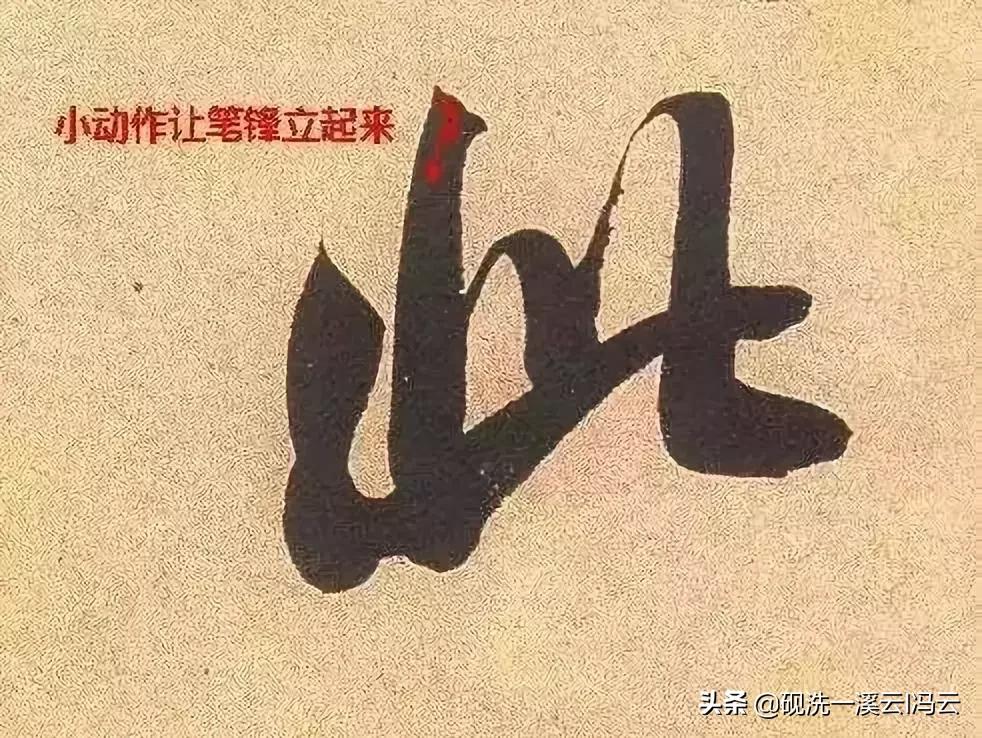 小动作让笔锋立起来
此
头条 @砚洗一溪云I冯云